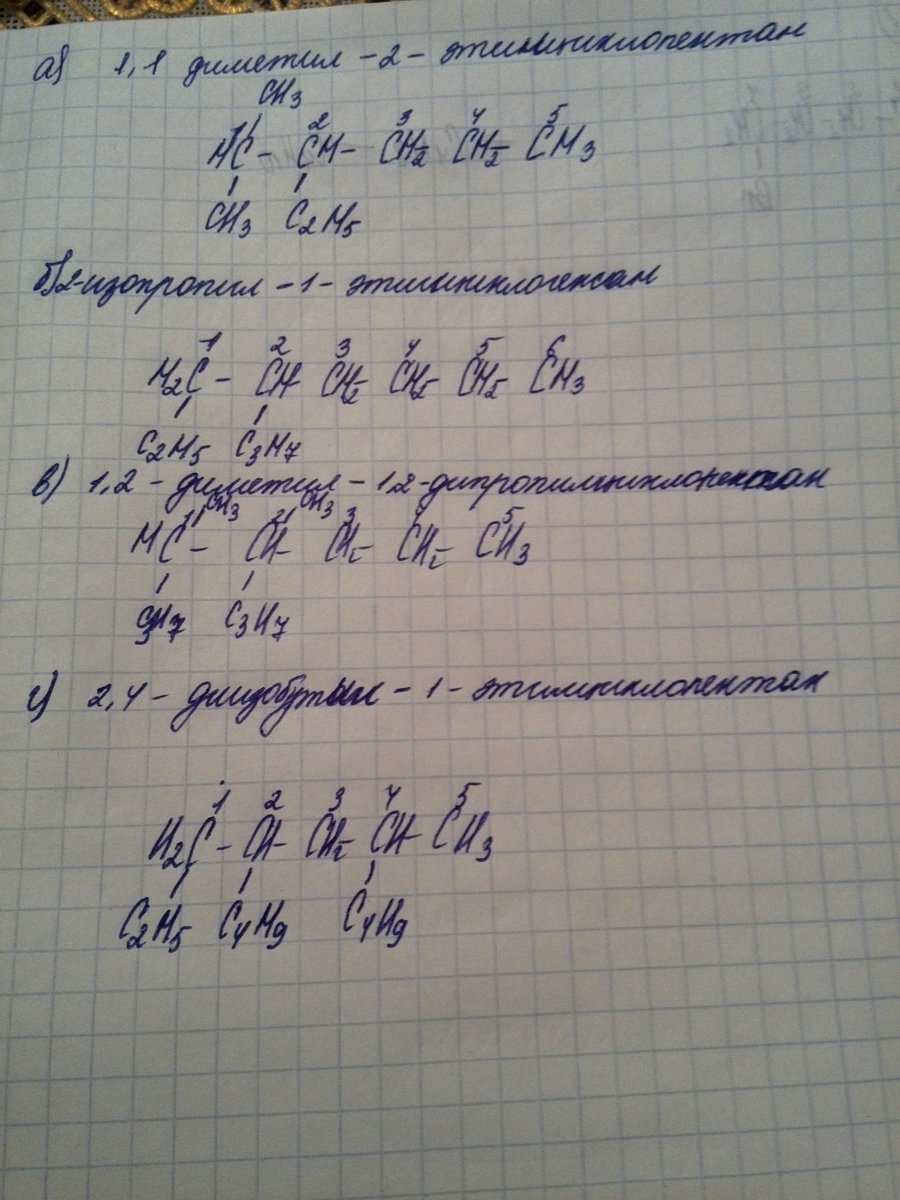 а) 1,1 диметил - 2 - этилциклопентан
CH3
1 2 3 4 5
HC - CH - CH2 - CH2 - CH3
CH3 C2H5
б) 2-изопропил - 1 - этилциклогексан
1 2 3 4 5 6
H2C - CH CH2 CH2 CH2 CH3
C2H5 C3H7
в) 1,2 - диметил - 1,2-дипропилциклопентан
CH3 CH3
1 2 3 4 5
HC - CH - CH2 - CH2 CH3
C3H7 C3H7
г) 2,4 - диизобутил - 1 - этилциклопентан
1 2 3 4 5
H2C - CH - CH2 CH CH3
C2H5 C4H9 C4H9